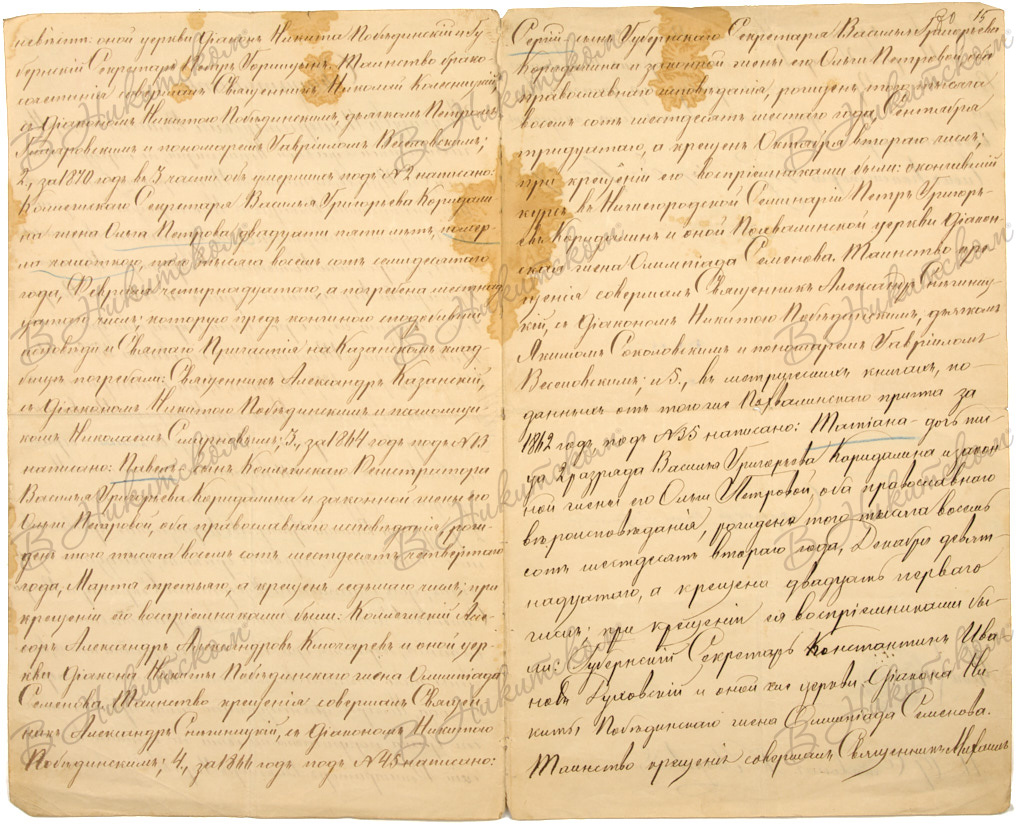 невѣстѣ: оной церкви Діаконъ Никита Побѣдинскій и Гу-
бернскій Секретарь Петръ Таинство брако-
сочетанія совершалъ Священникъ Николай
съ Діакономъ Никитою Побѣдинскимъ, дьячкомъ Петромъ
и пономаремъ Гавріиломъ Веселовскимъ;
2., за 1870 годъ въ 3 части объ умершихъ подъ №2 написано:
Коллежскаго Секретаря Василья Григорьева Коридали-
на жена Ольга Петрова двадцати пяти лѣтъ, помер-
ла чахоткою, тысяча восемь сотъ семидесятаго
года, Февраля четырнадцатаго, а погребена шестнад-
цатаго числъ, которую предъ кончиною сподобившій
исповѣди и Святаго Причастія на Казанскомъ клад-
бищѣ погребали: Священникъ Александръ Казанскій,
съ Діакономъ Никитою Побѣдинскимъ и псаломщи-
комъ Николаемъ Смирновымъ; 3., за 1864 годъ подъ №13
написано: сынъ Коллежскаго Регистратора
Василья Григорьева Коридалина и законной жены его
Ольги Петровой, оба православнаго исповѣданія, рож-
денъ того тысяча восемь сотъ шестдесятъ четвертаго
года, Марта третьяго, а крещенъ седьмаго числъ; при
крещеніи его воспріемниками были: Коллежскій Асе-
соръ Александръ Александровъ Ключаревъ и оной цер-
кви Діакона Никиты Побѣдинскаго жена Олимпіада
Семенова. Таинство крещенія совершалъ Священ-
никъ Александръ Снѣжницкій, съ Діакономъ Никитою
Побѣдинскимъ; 4., за 1866 годъ подъ №45 написано:
15
Сергій сынъ Губернскаго Секретаря Василья Григорьева
Коридалина и законной жены его Ольги Петровой, оба
православнаго исповѣданія, рожденъ того тысяча
восемь сотъ шестдесятъ шестаго года Сентября
тридцатаго, а крещенъ Октября втораго числъ;
при крещеніи его воспріемниками были: окончившій
курсъ въ Нижегородской Семинаріи Петръ Григорь-
евъ Коридалинъ и оной Похвалинской церкви Діакон-
ская жена Олимпіада Семенова. Таинство кре-
щенія совершалъ Священникъ Александръ Снѣжниц-
кій, съ Діакономъ Никитою Побѣдинскимъ, дьячкомъ
Соколовскимъ и пономаремъ Гавріиломъ
Веселовскимъ; и 5., въ метрическихъ книгахъ, по-
данныхъ отъ того же Похвалинскаго причта за
1862 годъ подъ №35 написано: Татіана - дочь пис-
ца 2 разряда Василья Григорьева Коридалина и закон-
ной жены его Ольги Петровой, оба православнаго
вѣроисповѣданія, рождена того тысяча восемь
сотъ шестдесятъ втораго года, Декабря девят-
надцатаго, а крещена двадцать перваго
числъ; при крещеніи ея воспріемниками бы-
ли: Губернскій Секретарь Константинъ Ива-
новъ и оной же церкви Діакона Ни-
киты Побѣдинскаго жена Олимпіада Семенова.
Таинство крещенія совершалъ Священникъ Михаилъ
В Никитском